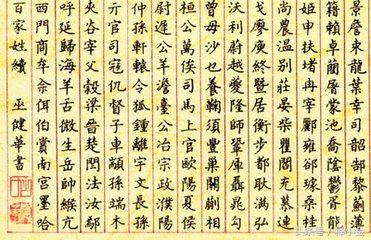 景詹束龍葉幸司韶郜黎薊薄
籍賴卓藺屠蒙池喬陰鬱胥能
姬申扶堵冉宰酈雍郤璩桑桂
尚農溫別莊晏柴瞿閻充慕連
戈廖庾終暨居衡步都耿滿弘
沃利蔚越夔隆師鞏厙聶晁勾
曾毋沙乜養鞠須豐巢關蒯相
桓公萬俟司馬上官歐陽夏侯
尉遲公羊澹臺公冶宗政濮陽
仲孫軒轅令狐鍾離宇文長孫
亓官司寇仉督子車顓孫端木
夾谷宰父穀梁晉楚閆法汝鄢
呼延歸海羊舌微生岳帥緱亢
西門商牟佘佴伯賞南宫墨哈
百家姓續 巫健華書